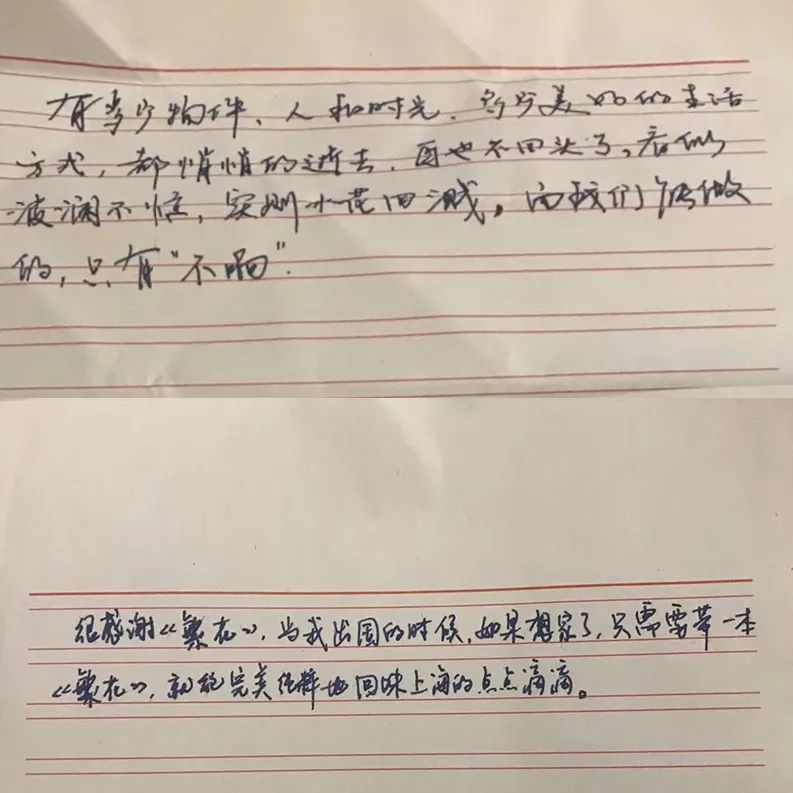 有多少物件、人和时光、多少美好的生活
方式，都悄悄的逝去，再也不回头了。看似
波澜不惊，实则水花四溅。而我们能做
的，只有“不响”.
很感谢《繁花》，当我出国的时候，如果想家了，只需要带一本
《繁花》，就能完美诠释地回味上海的点点滴滴。